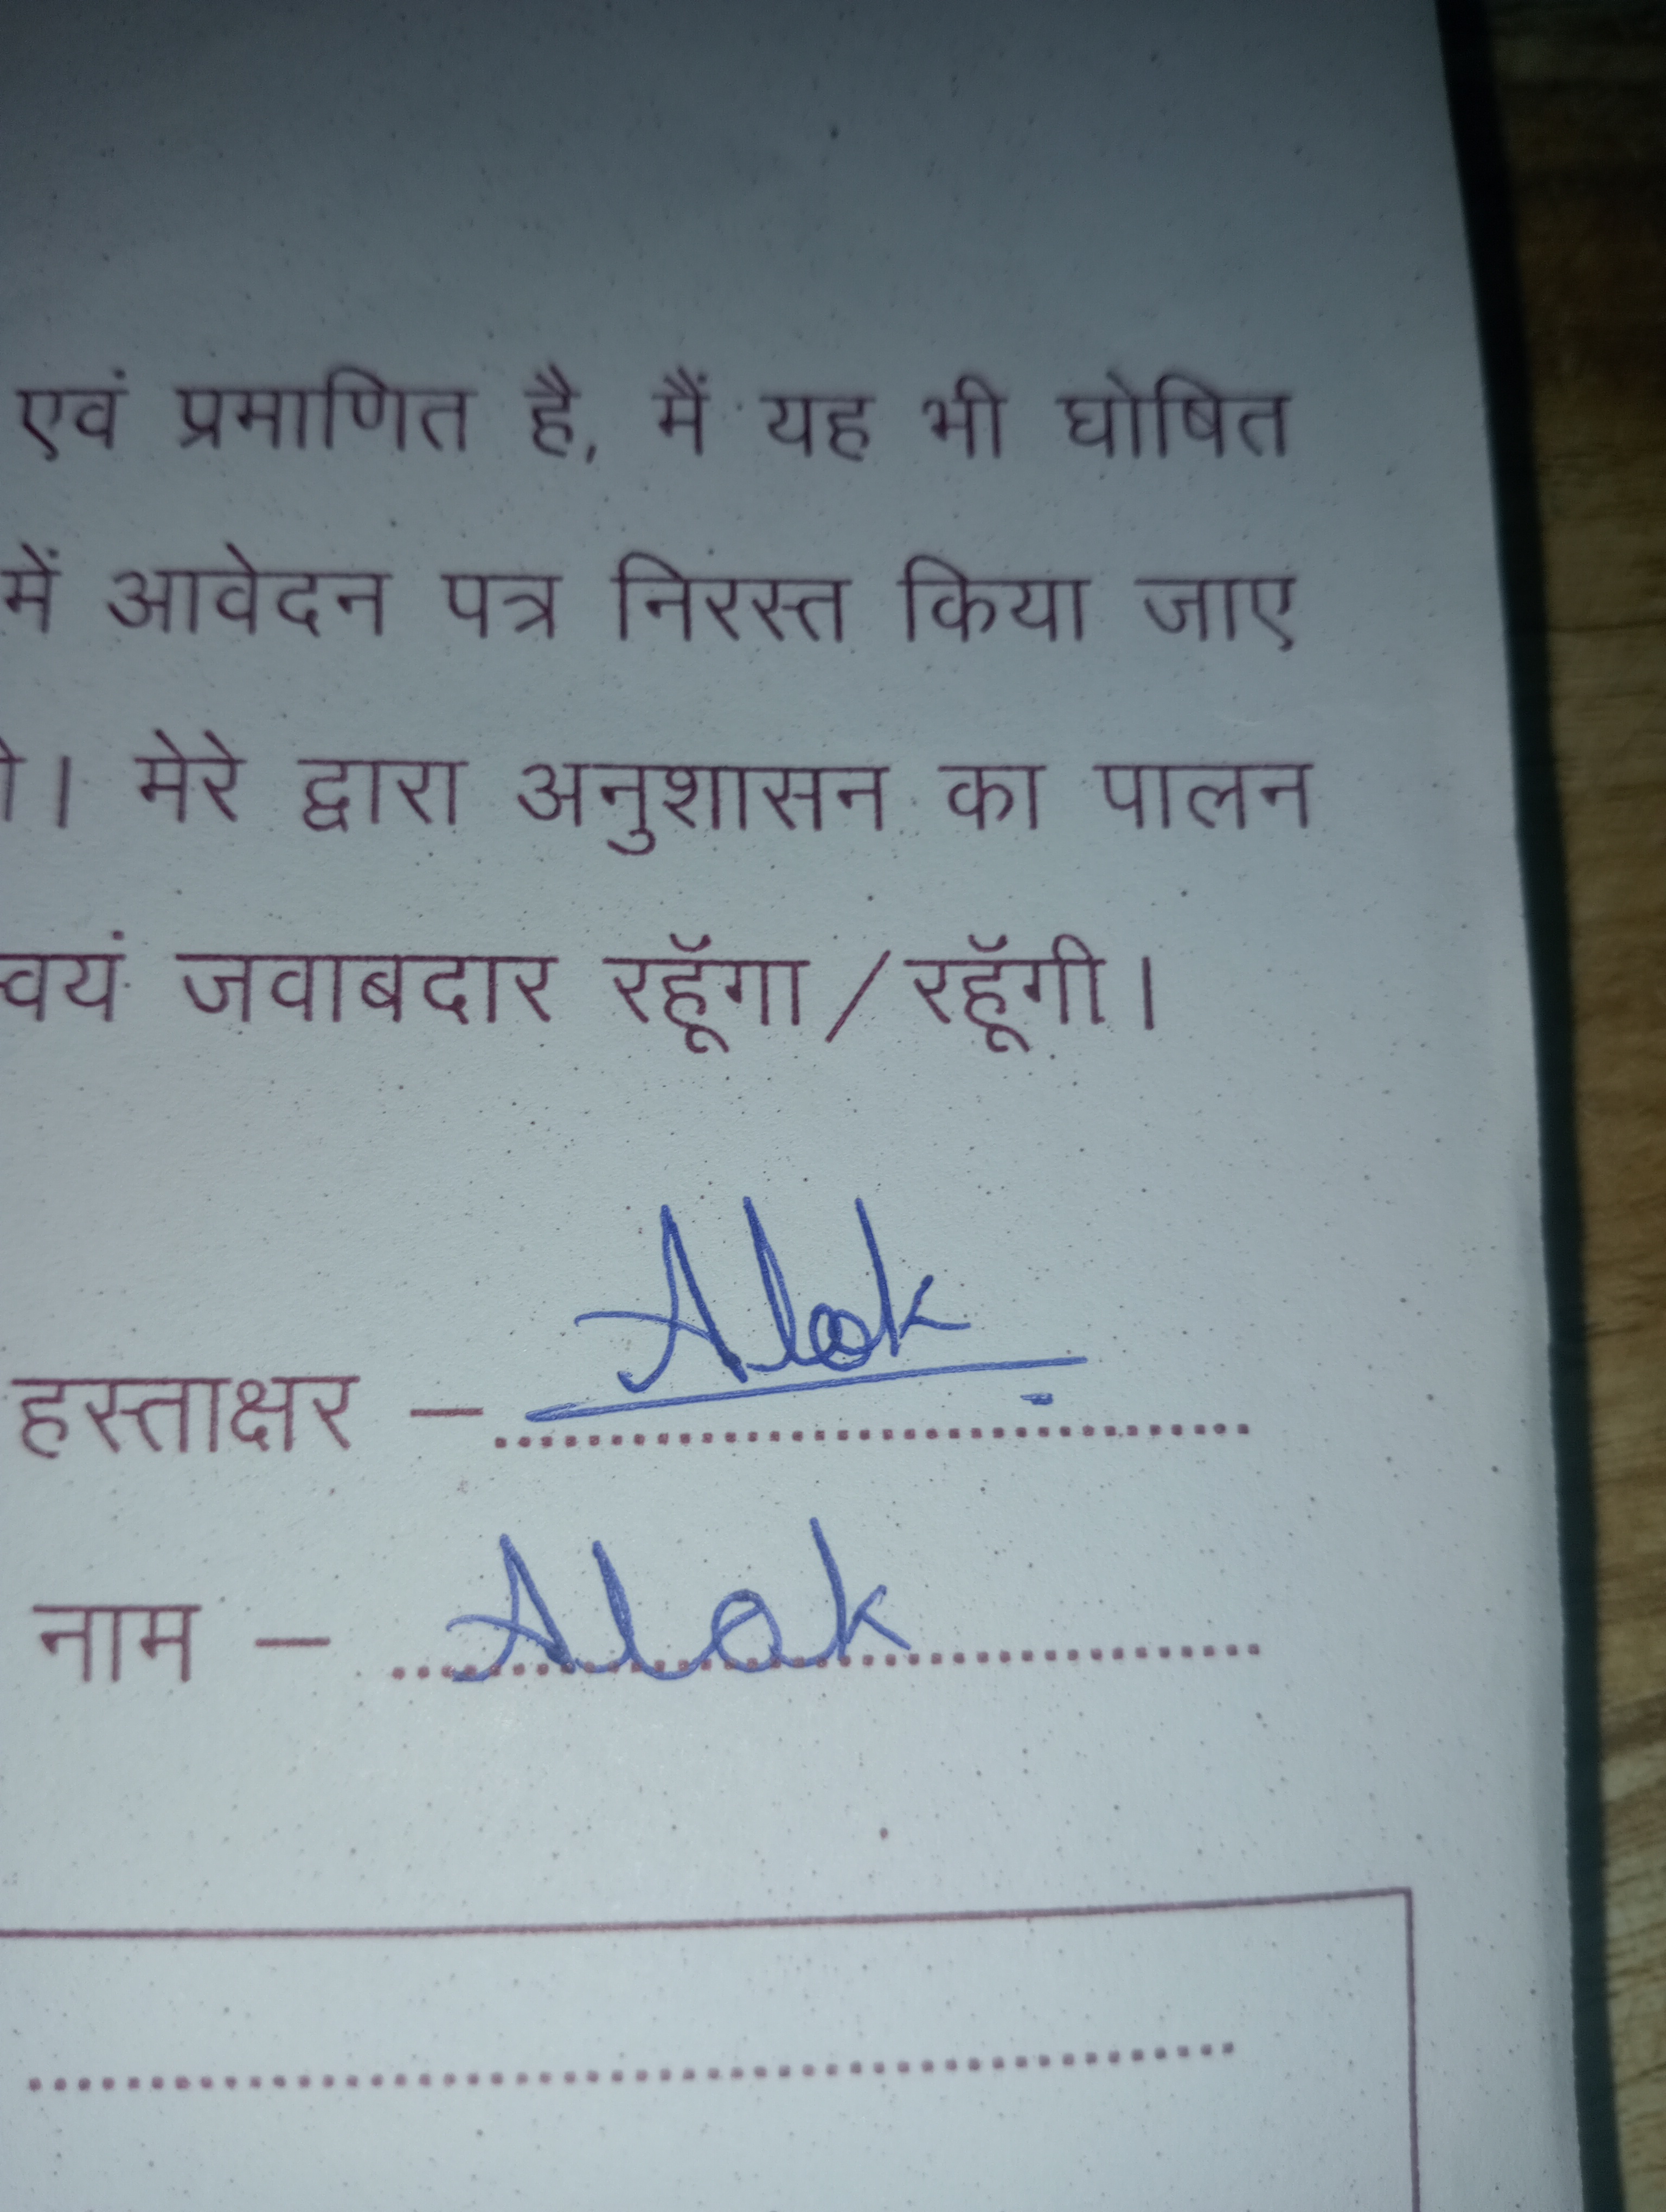 एवं प्रमाणित है, मैं यह भी घोषित
में आवेदन पत्र निरस्त किया जाए
। मेरे द्वारा अनुशासन का पालन
जवाबदार रहूॅगा/रहूॅगी।
हस्ताक्षर – Alok
नाम – Alok